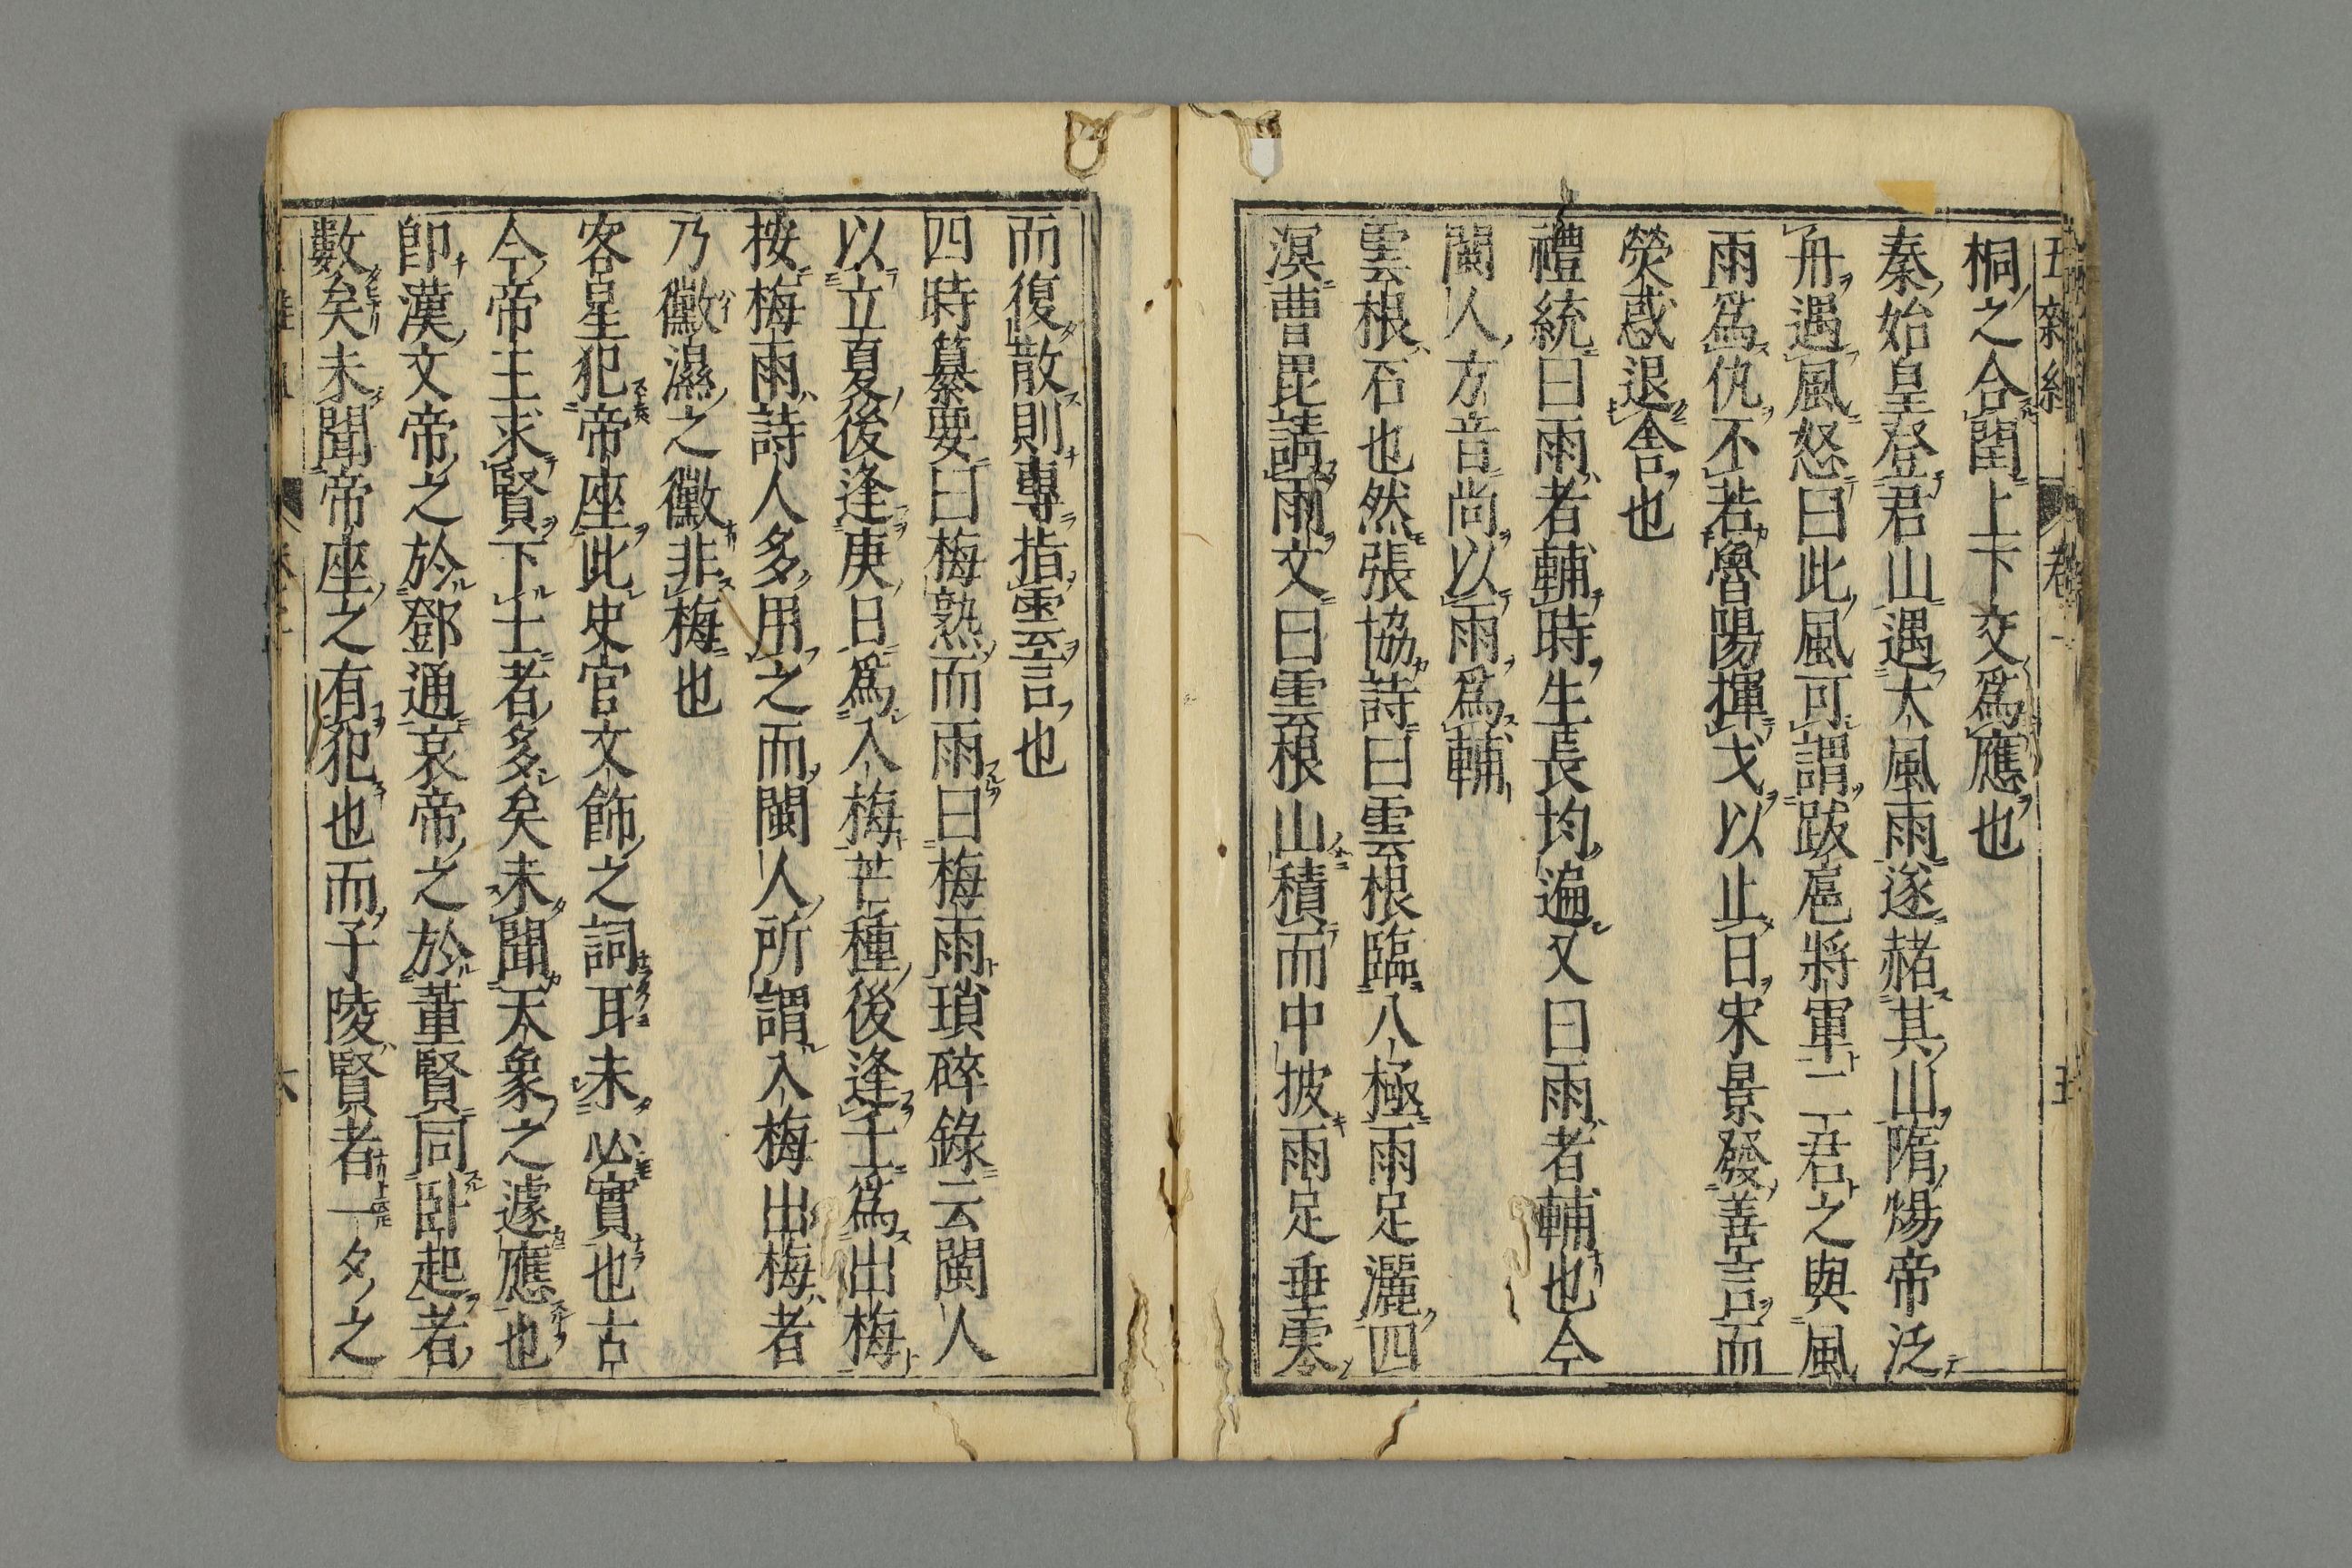 五雜組 卷一 五
桐之合閏上下交爲應也
秦始皇登君山遇大風雨遂赭其山隋煬帝泛
舟遇風怒曰此風可謂跋扈將軍二君之與風
雨爲仇不若魯陽揮戈以止日宋景發善言而
熒惑退舍也
禮統曰雨者輔時生長均遍又曰雨者輔也今
閩人方音尚以雨爲輔
雲根石也然張協詩曰雲根臨八極雨足灑四
溟曹毘請雨文曰雲根山積而中披雨足垂零
而復散則專指雲言也
四時纂要曰梅熟而雨曰梅雨瑣碎錄云閩人
以立夏後逢庚日爲入梅芒種後逢壬爲出梅
按梅雨詩人多用之而閩人所謂入梅出梅者
乃黴濕之黴非梅也
客星犯帝座此史官文飾之詞耳未必實也古
今帝王求賢下士者多矣未聞天象之遽應也
卽漢文帝之於鄧通哀帝之於董賢同臥起者
數矣未聞帝座之有犯也而子陵賢者一夕之
六